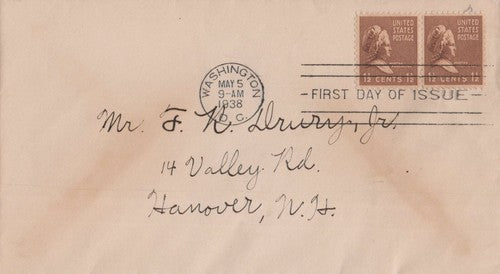 UNITED STATES POSTAGE
1½ CENTS 1½
UNITED STATES POSTAGE
1½ CENTS 1½
WASHINGTON
MAY 5
9-AM
1938
D.C.
FIRST DAY OF ISSUE
Mr. F. K. Drury, Jr.
14 Valley Rd.
Hanover, N.H.